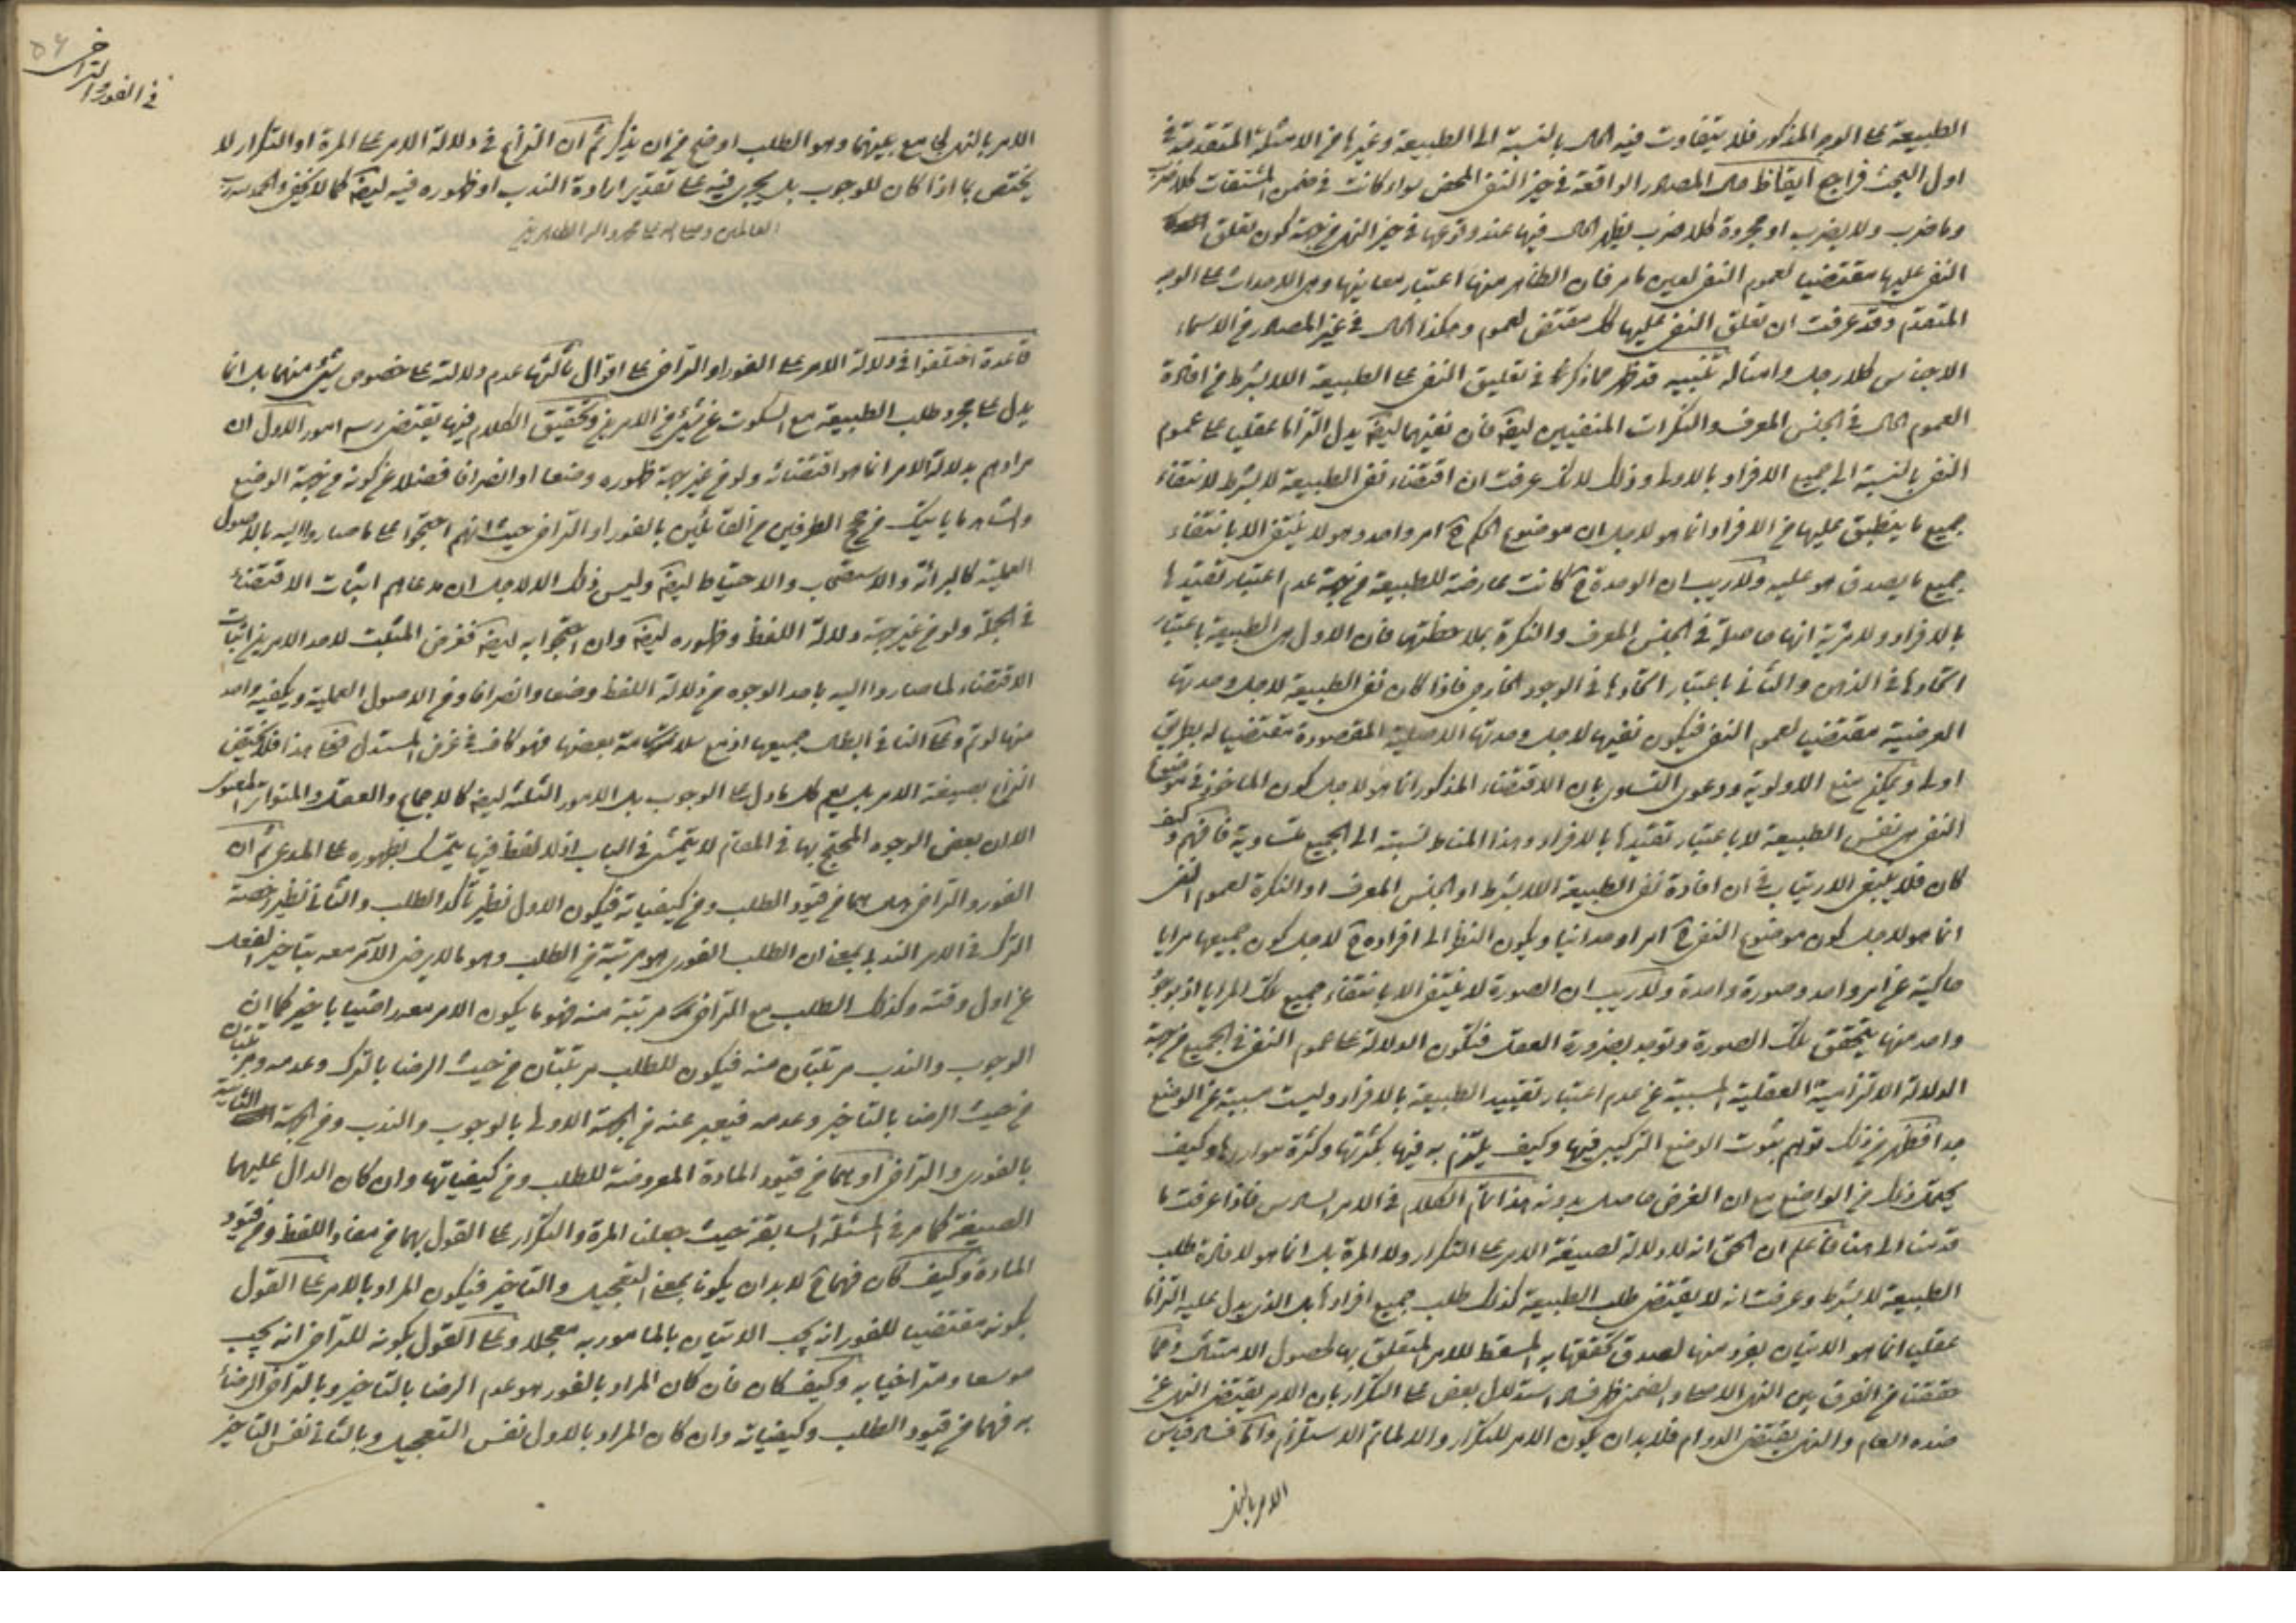 الطبيعة على الوجه المذكور فلا يتفاوت فيه الحال بالنسبة الى الطبيعة وغيرها من الامثلة المتقدمة في
اول البحث فراجع ايقاظ حال المصادر الواقعة في حيز النفي المحض سواء كانت في ضمن المشتقات كلا ضرب
وما ضرب ولا يضرب او مجردة كلا ضرب يظهر الحال فيها عند وقوعها في حيز النهي من جهة كون تعلق
النفي عليها مقتضيا لعموم النفي لعين ما مر فان الظاهر منها اعتبار معانيها وهي الاحداث على الوجه
المتقدم وقد عرفت ان تعلق النفي عليها كك مقتض لعموم وهكذا الحال في غير المصادر من الاسماء
الاجناس كلا رجل وامثاله تنبيه قد ظهر مما ذكرنا في تعليق النفي على الطبيعة اللا بشرط من افادة
العموم الحال في الجنس المعرف والنكرات المنفيين ايضا فان نفيهما ايضا يدل التزاما عقليا على عموم
النفي بالنسبة الى جميع الافراد بالاولى وذلك لانك عرفت ان اقتضاء نفي الطبيعة لا بشرط لانتفاء
جميع ما ينطبق عليها من الافراد انما هو لاجل ان موضوع الحكم ح امر واحد وهو لا ينتفي الا بانتفاء
جميع ما يصدق هو عليه ولا ريب ان الوحدة ح كانت عارضة للطبيعة من جهة عدم اعتبار تقييدها
بالافراد ولا مرية انها حاصلة في الجنس المعرف والنكرة بملاحظتها فان الاول هي الطبيعة باعتبار
اتحادها في الذهن والثاني باعتبار اتحادها في الوجود الخارجي فاذا كان نفي الطبيعة لاجل وحدتها
العرضية مقتضيا لعموم النفي فيكون نفيها لاجل وحدتها الاصلية المقصودة مقتضيا له بطريق
اولى ويمكن منع الاولوية ودعوى التساوي بان الاقتضاء المذكور انما هو لاجل كون الماخوذ في موضوع
النفي هي نفس الطبيعة لا باعتبار تقييدها بالافراد وهذا المناط نسبته الى الجميع متساوية فافهم وكيف
كان فلا ينبغي الارتياب في ان افادة نفي الطبيعة اللا بشرط او الجنس المعرف او النكرة لعموم النفي
انما هو لاجل كون موضوع النفي ح امرا وحدانيا ويكون النظر الى افراده ح لاجل كون جميعها مرايا
حاكية عن امر واحد وصورة واحدة ولا ريب ان الصورة لا ينتفي الا بانتفاء جميع تلك المرايا اذ بوجود
واحد منها يتحقق تلك الصورة وتوجد بضرورة العقل فتكون الدلالة على عموم النفي في الجميع من جهة
الدلالة الالتزامية العقلية المسببة عن عدم اعتبار تقييد الطبيعة بالافراد وليست مسببة عن الوضع
جدا فظهر من ذلك توهم ثبوت الوضع التركيبي فيها وكيف يلتزم به فيها بكثرتها وكثرة مواردها وكيف
يحتمل ذلك من الواضع مع ان الغرض حاصل بدونه هذا تمام الكلام في الامر السادس فاذا عرفت ما
قدمنا الى هنا فاعلم ان الحق انه لا دلالة لصيغة الامر على التكرار ولا المرة بل انما هو لافادة طلب
الطبيعة لا بشرط وعرفت انه لا يقتضي طلب الطبيعة كذلك طلب جميع افرادها بل الذي يدل عليه التزاما
عقليا انما هو الاتيان بفرد منها لصدق تحققها به المسقط للامر المتعلق بها لحصول الامتثال ومما
حققنا من الفرق بين النهي الاصلي والضمني ظهر فساد استدلال بعض على التكرار بان الامر يقتضي النهي عن
ضده العام والنهي يقتضي الدوام فلا بد ان يكون الامر للتكرار والا لما تم الاستلزام واما فساد قياس
الامر بالنهي
في الفور والتراخي
٥٤
الامر بالنهي لجامع بينهما وهو الطلب اوضح من ان يذكر ثم ان النزاع في دلالة الامر على المرة او التكرار لا
يختص بما اذا كان للوجوب بل يجري فيه على تقدير ارادة الندب او ظهوره فيه ايضا كما لا يخفى والحمد لله رب
العالمين وصلى الله على محمد واله الطاهرين
قاعدة اختلفوا في دلالة الامر على الفور او التراخي على اقوال ثالثها عدم دلالته على خصوص شيء منهما بل انما
يدل على مجرد طلب الطبيعة مع السكوت عن شيء من الامرين وتحقيق الكلام فيها يقتضي رسم امور الاول ان
مرادهم بدلالة الامر انما هو اقتضائه ولو من غير جهة ظهوره وضعا او انصرافا فضلا عن كونه من جهة الوضع
والشاهد ما ياتيك من حجج الطرفين من القائلين بالفور او التراخي حيث انهم احتجوا على ما صاروا اليه بالاصول
العملية كالبرائة والاستصحاب والاحتياط ايضا وليس ذلك الا لاجل ان مدعاهم اثبات الاقتضاء
في الجملة ولو من غير جهة دلالة اللفظ وظهوره ايضا وان احتجوا به ايضا فغرض المثبت لاحد الامرين اثبات
الاقتضاء لما صاروا اليه باحد الوجوه من دلالة اللفظ وضعا وانصرافا ومن الاصول العملية ويكفيه واحد
منها لو تم وعلى النافي ابطال جميعها اذ مع سلامة بعضها فهو كاف في غرض المستدل فعلى هذا فلا يختص
النزاع بصيغة الامر بل يعم كل ما دل على الوجوب بل الامور الثلثة ايضا كالاجماع والعقل والمتواتر المعنوي
الا ان بعض الوجوه المحتج بها في المقام لا يتمشى في الباب اذ لا لفظ فيها يتمسك بظهوره على المدعى ثم ان
الفور والتراخي هل هما من قيود الطلب ومن كيفياته فيكون الاول نظير تاكد الطلب والثاني نظير رخصة
الترك في الامر الندبي بمعنى ان الطلب الفوري هو مرتبة من الطلب وهو ما لا يرضى الآمر معه بتاخير الفعل
عن اول وقته وكذلك الطلب مع التراخي مرتبة منه فهو ما يكون الامر معه راضيا بتاخير كما ان
الوجوب والندب مرتبتان منه فيكون للطلب مرتبتان من حيث الرضا بالترك وعدمه ومرتبتان
من حيث الرضا بالتاخير وعدمه فيعبر عنه من الجهة الاولى بالوجوب والندب ومن الجهة الثانية
بالفوري والتراخي او هما من قيود المادة المعروضة للطلب ومن كيفياتها وان كان الدال عليهما
الصيغة كما مر في المسئلة السابقة حيث جعلنا المرة والتكرار على القول بهما من مفاد اللفظ ومن قيود
المادة وكيف كان فهما ح لا بد ان يكونا بمعنى التعجيل والتاخير فيكون المراد بالامر على القول
بكونه مقتضيا للفور انه يجب الاتيان بالمامور به معجلا وعلى القول بكونه للتراخي انه يجب
موسعا ومتراخيا به وكيف كان فان كان المراد بالفور هو عدم الرضا بالتاخير وبالتراخي الرضاء
به فهما من قيود الطلب وكيفياته وان كان المراد بالاول نفس التعجيل وبالثاني نفس التاخير